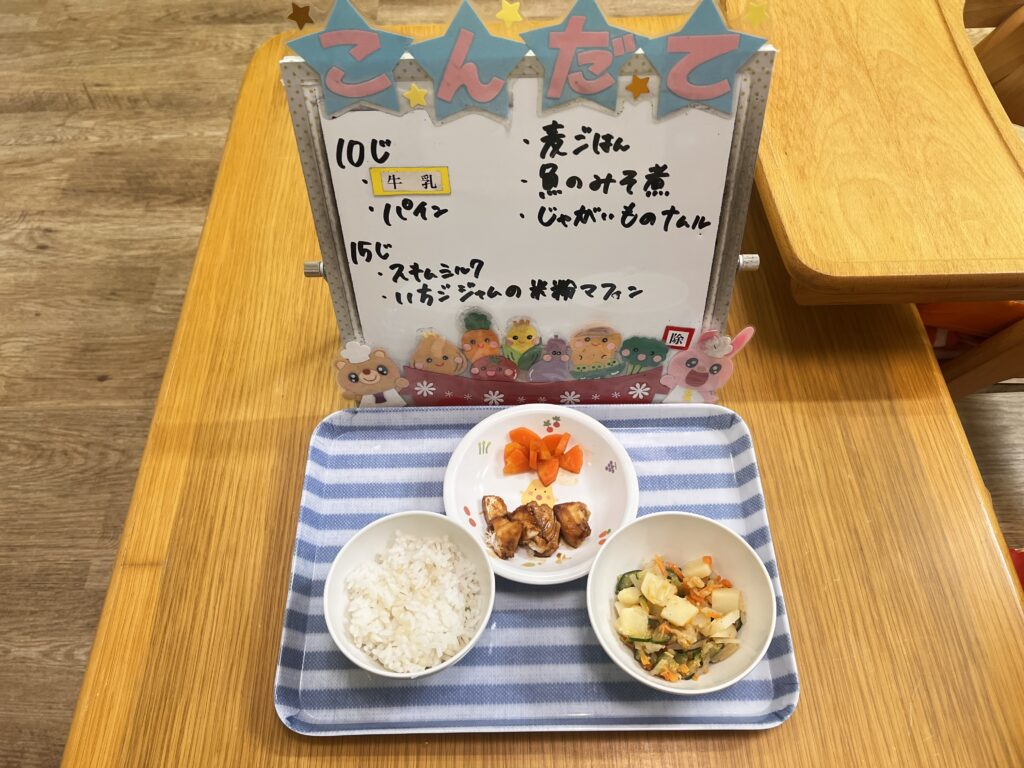 こんだて
10じ
・牛乳
・パイン
15じ
・スキムミルク
・いちごジャムの米粉マフィン
・麦ごはん
・魚のみそ煮
・じゃがいものナムル
除